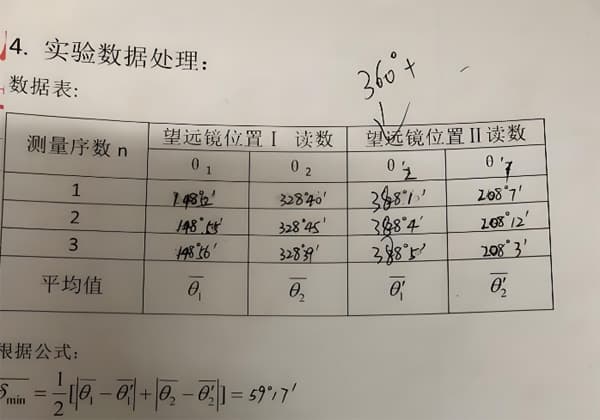 4. 实验数据处理：
数据表:
360°+
测量序数 n 望远镜位置 I 读数 望远镜位置 II 读数
θ1 θ2 θ'2 θ'1
1 328°40' 208°7'
2 148°55' 328°45' 208°12'
3 148°56' 328°39' 208°3'
平均值 θ̄1 θ̄2 θ̄'1 θ̄'2
根据公式:
δ̄min = 1/2[|θ̄1 − θ̄'1| + |θ̄2 − θ̄'2|] = 59°17'